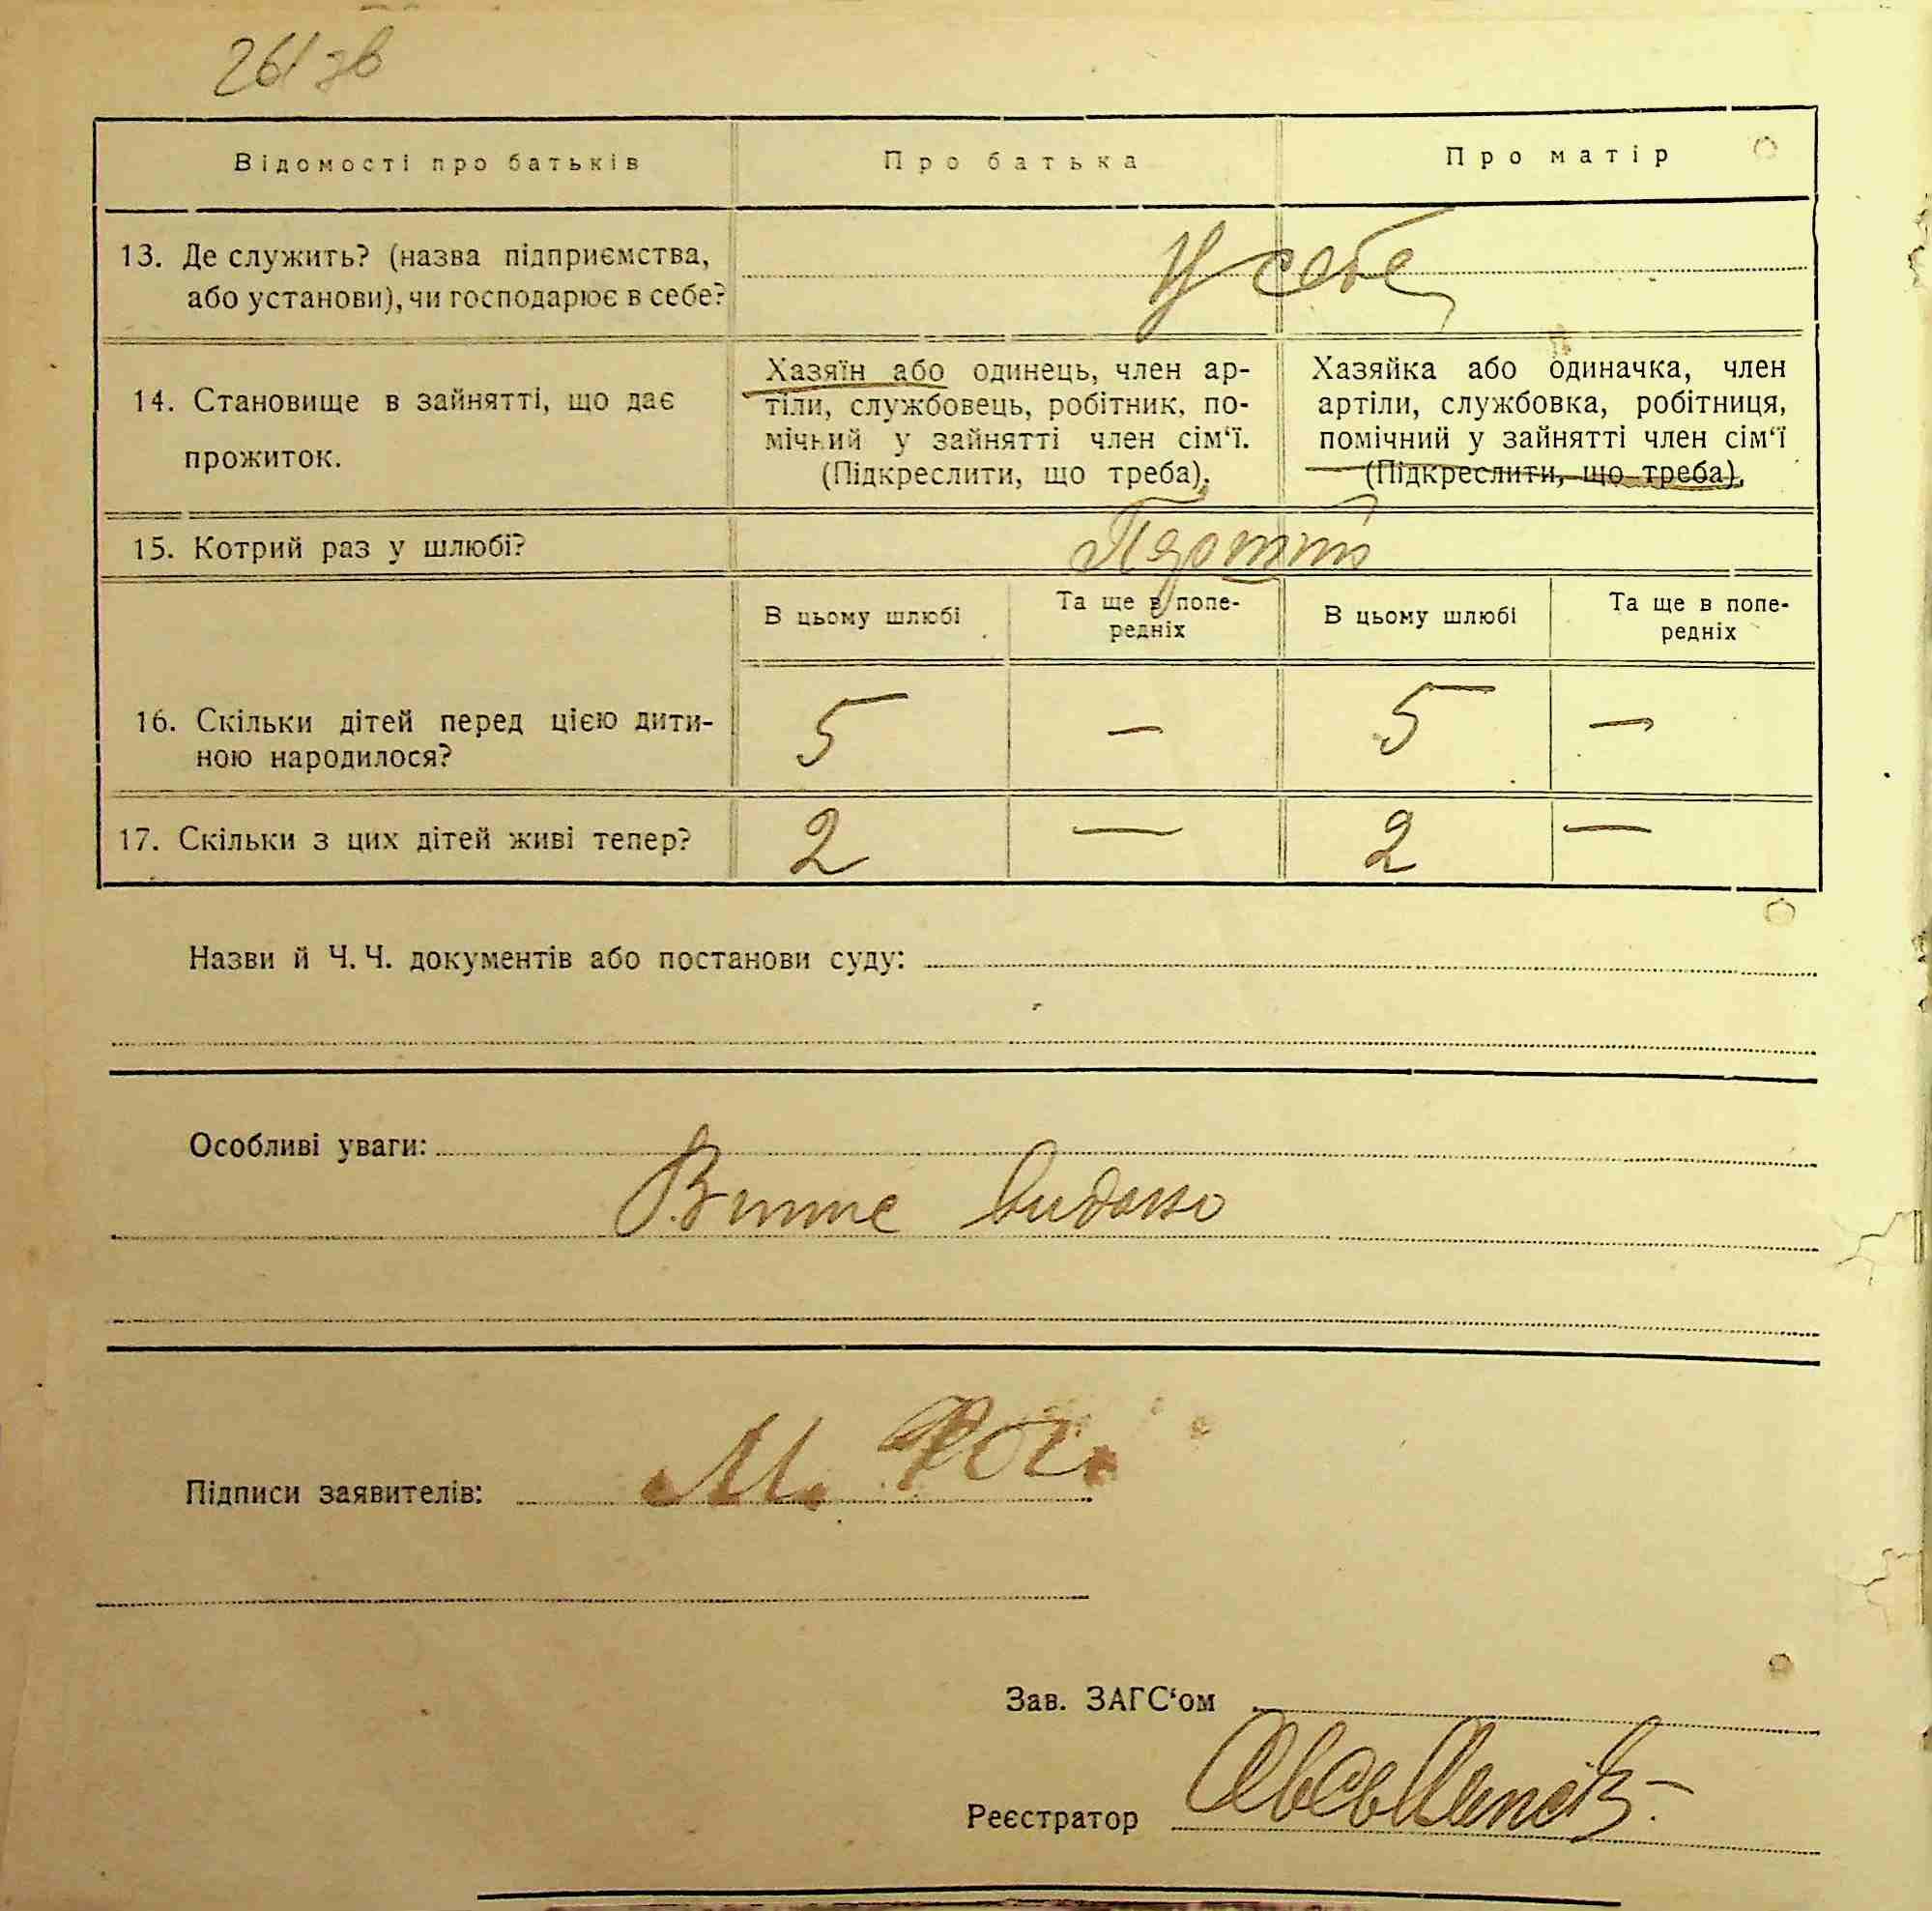 261 зв
Відомості про батьків
Про батька
Про матір
13. Де служить? (назва підприємства,
або установи), чи господарює в себе?
У себе
14. Становище в зайнятті, що дає
прожиток.
Хазяїн або одинець, член ар-
тіли, службовець, робітник, по-
мічний у зайнятті член сім‘ї.
(Підкреслити, що треба).
Хазяйка або одиначка, член
артіли, службовка, робітниця,
помічний у зайнятті член сім‘ї
(Підкреслити, що треба).
15. Котрий раз у шлюбі?
В цьому шлюбі
Та ще в попе-
редніх
В цьому шлюбі
Та ще в попе-
редніх
16. Скільки дітей перед цією дити-
ною народилося?
5 — 5 —
17. Скільки з цих дітей живі тепер?
2 — 2 —
Назви й Ч. Ч. документів або постанови суду:
Особливі уваги:
видано
Підписи заявителів:
М.
Зав. ЗАГС‘ом
Реєстратор